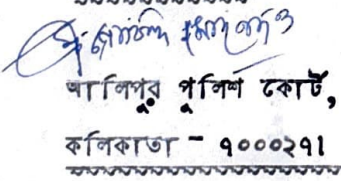 আলিপুর পুলিশ কোর্ট,
কলিকাতা - ৭০০০২৭১